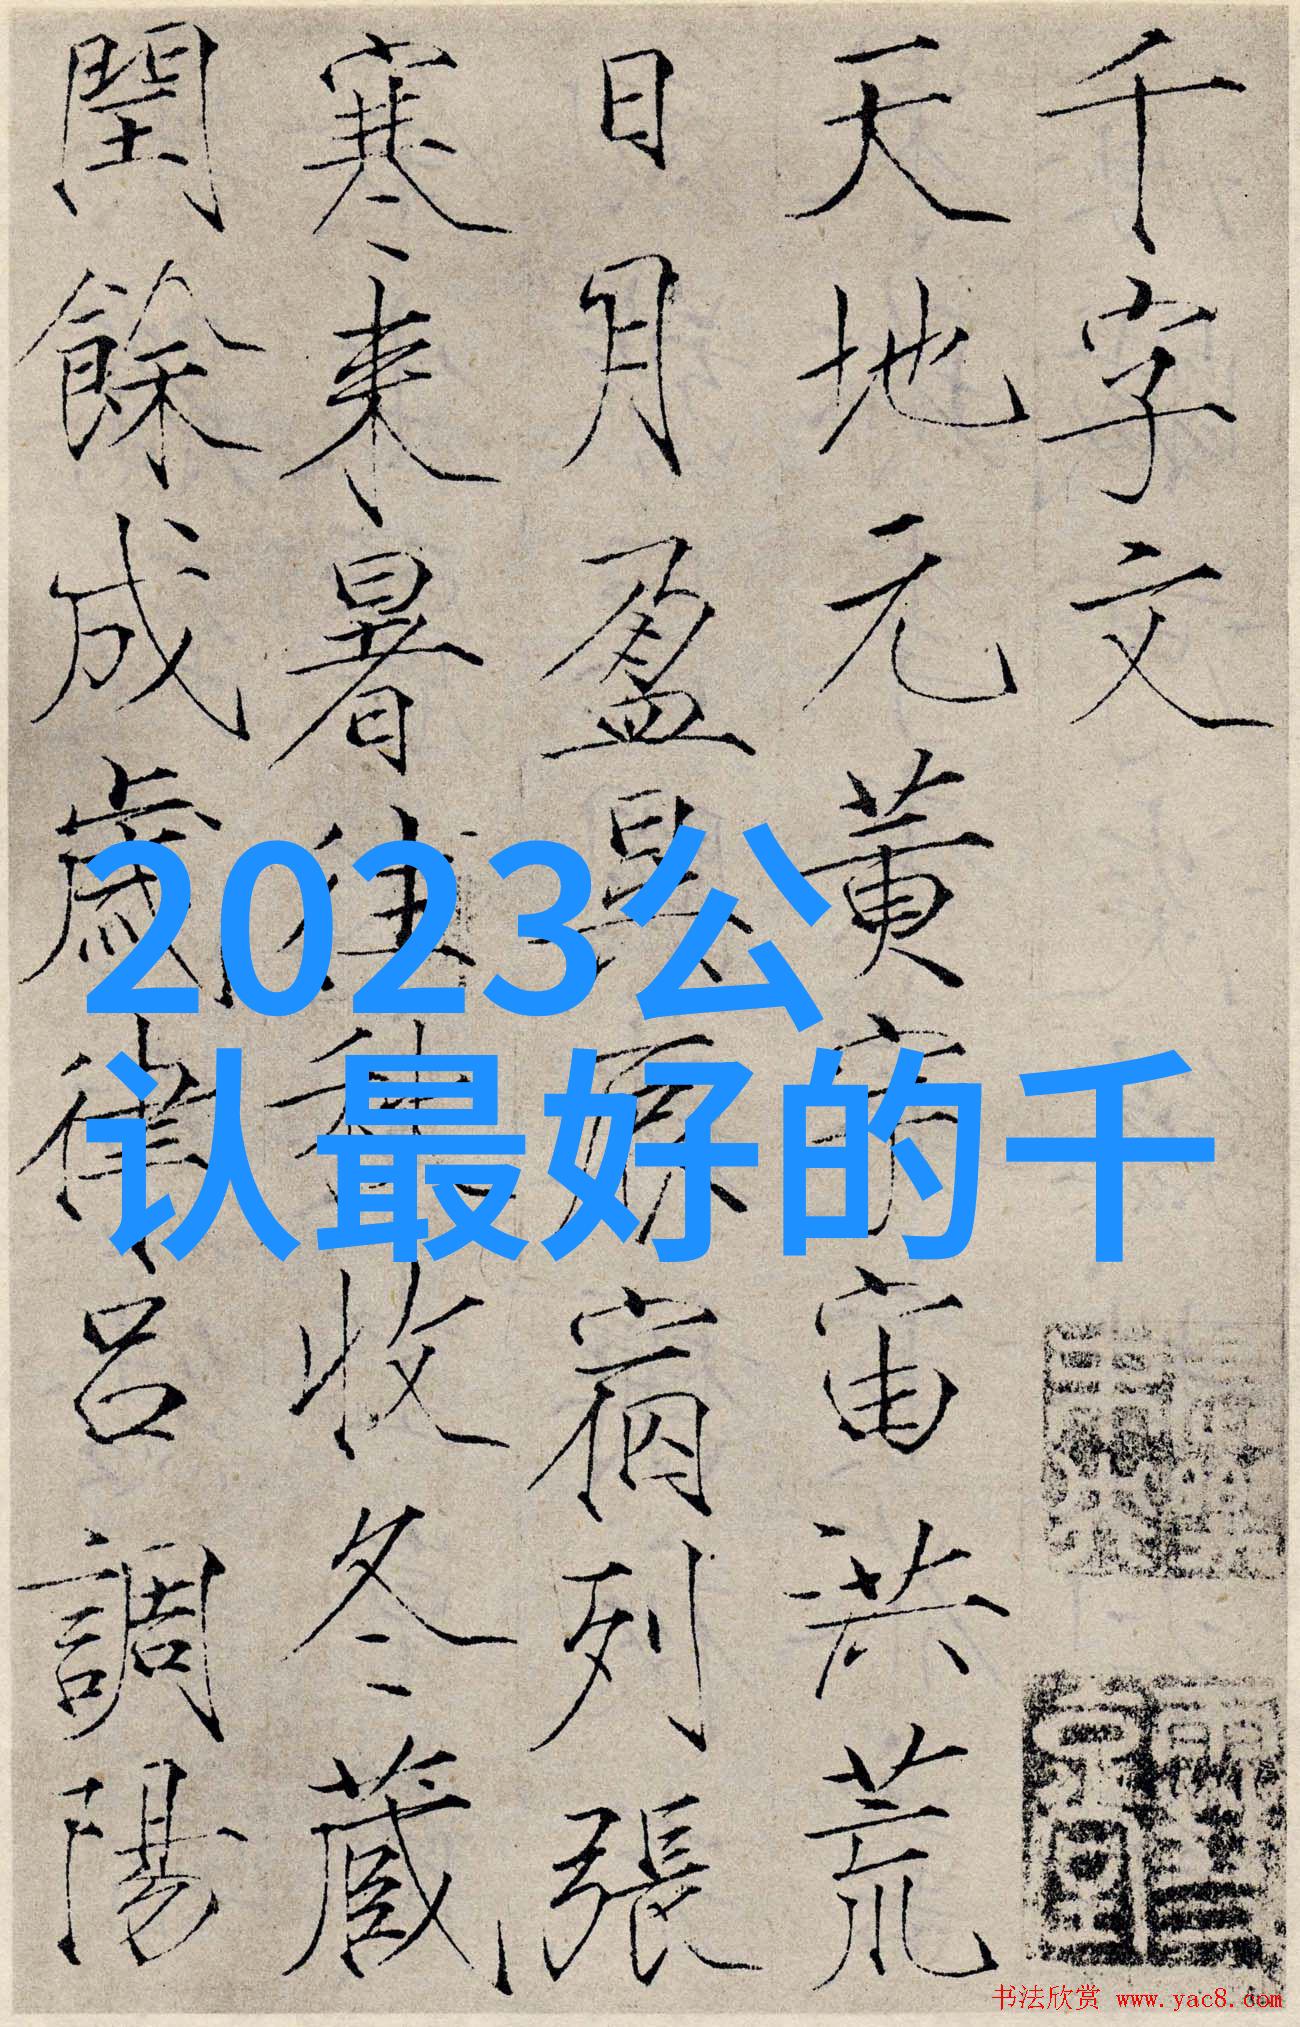 千字文
天地元黃宇宙洪荒
日月盈昃辰宿列張
寒来暑往秋收冬蔵
閏餘成歲律呂調陽
2023公
认最好的千
书法欣赏 www.yac8.com